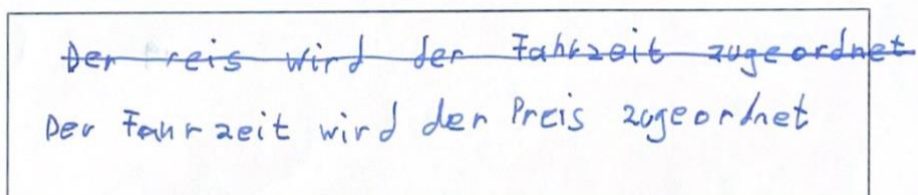 Der reis wird der Fahrzeit zugeordnet
Der Fahrzeit wird der Preis zugeordnet